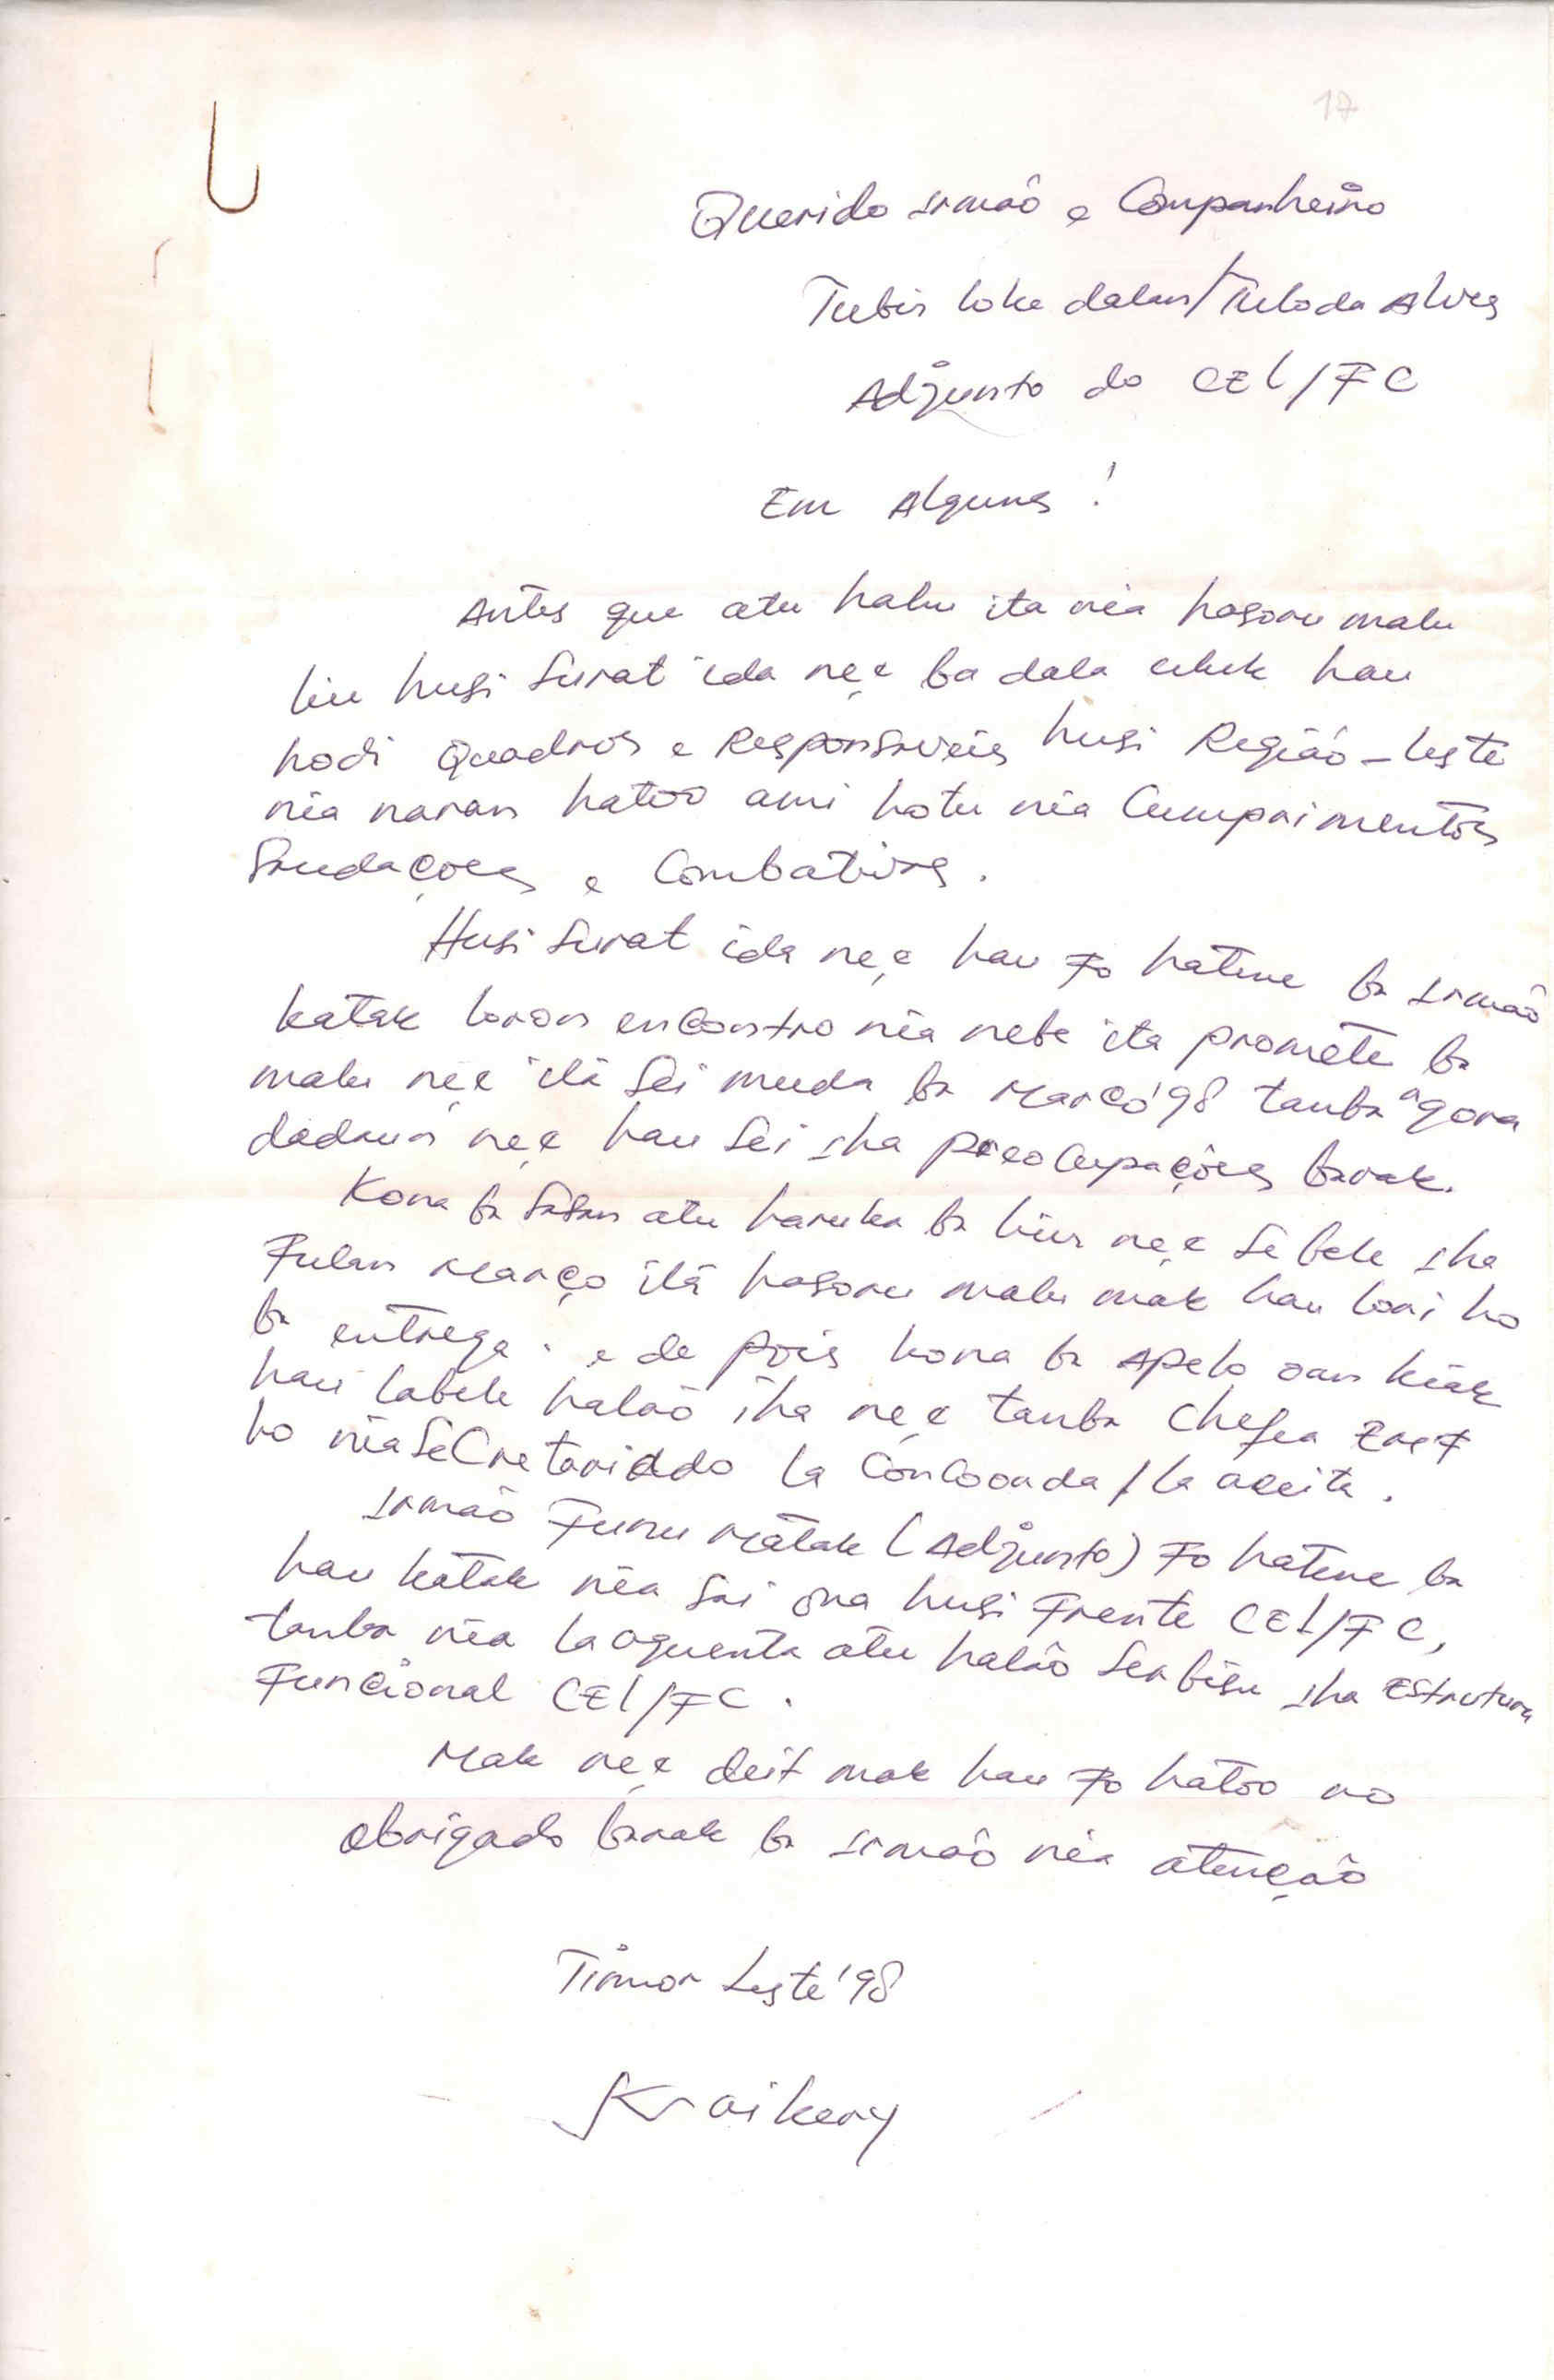 17
Querido irmaõ e Companheiro
Tubir loke dalan/Tuloda Alves
Adjunto do CEL/FC
Em Algures !
Antes que atu halu ita nia hasoru malu
liu husi Surat ida ne,e ba dala uluk hau
hodi Quadros e Responsaveis husi Região - leste
nia naran hatoo ami hotu nia Cumprimentos
Saudações e Combativas.
Husi Surat ida ne,e hau Fo hatene ba irmaõ
katak loron encontro nia nebe ita promete ba
malu ne,e itá Sei muda ba Março'98 tanba agora
dadaun ne,e hau Sei iha preocupações barak.
Kona ba Sasan atu haruka ba liur ne,e Se bele iha
Fulan Março itá hasoru malu mak hau lori ho
ba entrega. e de pois kona ba Apelo oan kiak
hau labele halaõ iha ne,e tanba Chefea
ho nia SeCretariado la Concorda / la aceita.
Irmaõ Funu Matak (Adjunto) Fo hatene ba
hau katak nia Sai ona husi Frente CEL/FC,
tanba nia la aguenta atu halaõ Serbisu iha Estrutura
Funcional CEL/FC.
Mak ne,e deit mak hau Fo hatoo no
Obrigado barak ba irmaõ nia atençaõ
Timor Leste'98